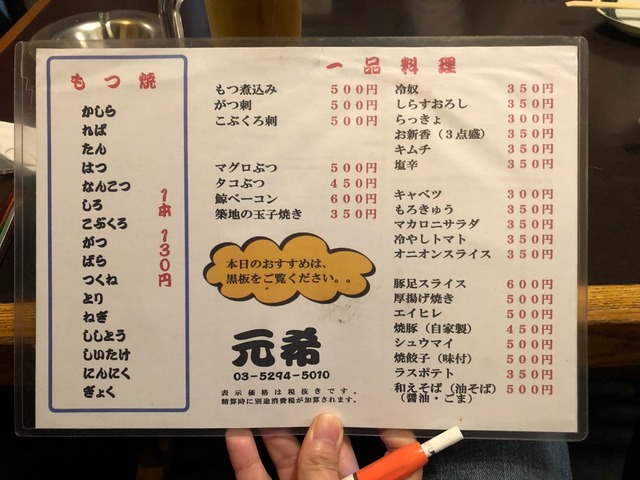 もつ焼
かしら
れば
たん
はつ
なんこつ
しろ
こぶくろ
がつ
ばら
つくね
とり
ねぎ
ししとう
しいたけ
にんにく
ぎょく
1本 130円
一品料理
もつ煮込み 500円
がつ刺 500円
こぶくろ刺 500円
マグロぶつ 500円
タコぶつ 450円
鯨ベーコン 600円
築地の玉子焼き 350円
本日のおすすめは、
黒板をご覧ください。。
元希
03-5294-5010
表示価格は税抜きです。
精算時に別途消費税が加算されます。
冷奴 350円
しらすおろし 350円
らっきょ 300円
お新香（3点盛） 350円
キムチ 350円
塩辛 350円
キャベツ 300円
もろきゅう 350円
マカロニサラダ 350円
冷やしトマト 350円
オニオンスライス 350円
豚足スライス 600円
厚揚げ焼き 500円
エイヒレ 500円
焼豚（自家製） 450円
シュウマイ 500円
焼餃子（味付） 500円
ラスポテト 350円
和えそば（油そば） 500円
（醤油・ごま）